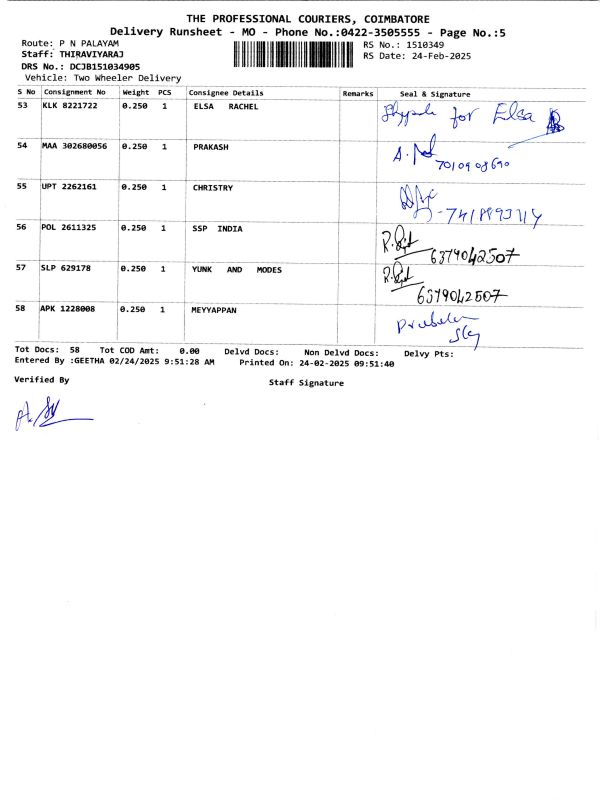 THE PROFESSIONAL COURIERS, COIMBATORE
Delivery Runsheet - MO - Phone No.:0422-3505555 - Page No.:5
Route: P N PALAYAM
RS No.: 1510349
Staff: THIRAVIYARAJ
RS Date: 24-Feb-2025
DRS No.: DCJB151034905
Vehicle: Two Wheeler Delivery
S No Consignment No Weight PCS Consignee Details Remarks Seal & Signature
53 KLK 8221722 0.250 1 ELSA RACHEL for Elsa
54 MAA 302680056 0.250 1 PRAKASH
7010908690
55 UPT 2262161 0.250 1 CHRISTRY
56 POL 2611325 0.250 1 SSP INDIA
6379042507
57 SLP 629178 0.250 1 YUNK AND MODES
6379042507
58 APK 1228008 0.250 1 MEYYAPPAN
Tot Docs: 58 Tot COD Amt: 0.00 Delvd Docs: Non Delvd Docs: Delvy Pts:
Entered By :GEETHA 02/24/2025 9:51:28 AM Printed On: 24-02-2025 09:51:40
Verified By
Staff Signature